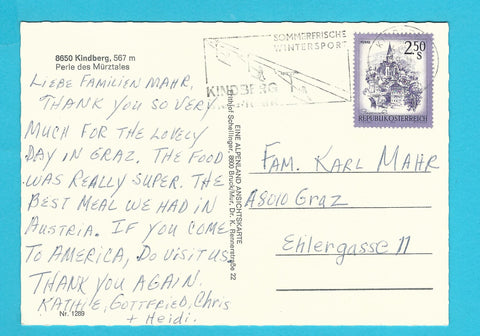 8650 Kindberg, 567 m
Perle des Mürztales
LIEBE FAMILIEN MAHR.
THANK YOU SO VERY
MUCH FOR THE LOVELY
DAY IN GRAZ. THE FOOD
WAS REALLY SUPER. THE
BEST MEAL WE HAD IN
AUSTRIA. IF YOU COME
TO AMERICA, DO VISIT US.
THANK YOU AGAIN.
KATHIE, GOTTFRIED, Chris
+ Heidi.
Nr. 1289
EINE ALPENLAND ANSICHTSKARTE
Schellinger, 8600 Bruck/Mur, Dr. K. Rennerstraße 22
SOMMERFRISCHE
WINTERSPORT
KINDBERG
2.50
S
REPUBLIK ÖSTERREICH
FAM. KARL MAHR
A8010 Graz
Ehlergasse 11